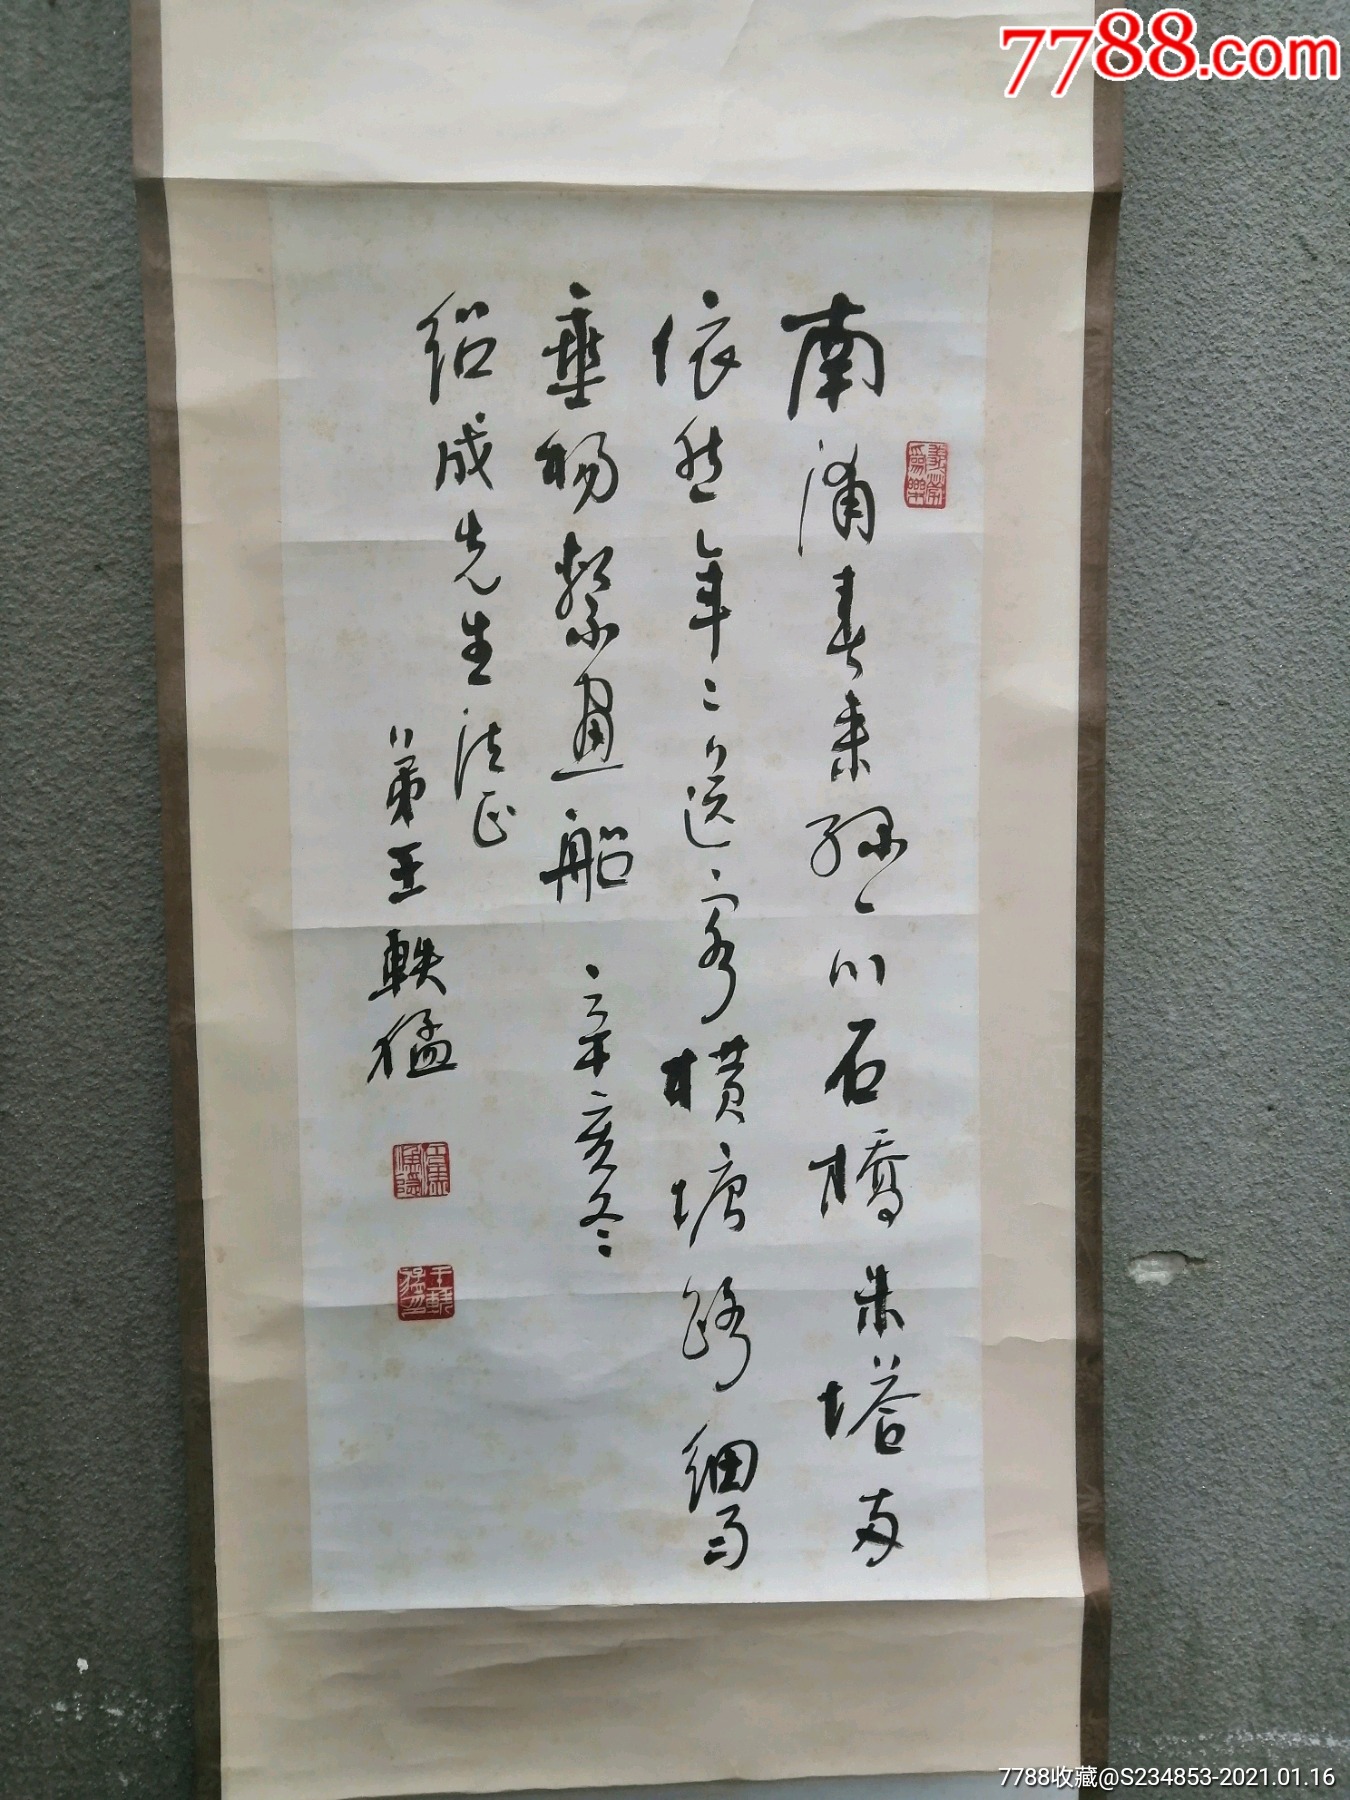 7788.com
南浦春来绿一川石橋朱塔両
依然年〻送客横塘路細雨
垂楊繫画船 辛亥冬
紹成先生法正
弟王軼猛
王軼猛印
7788收藏@S234853-2021.01.16